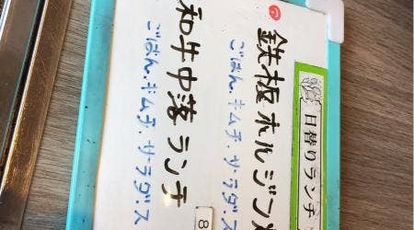 日替りランチ
鉄板ホルジン
ごはん.キムチ.サラダ.ス
和牛中落ランチ
ごはん.キムチ.サラダ.ス
8